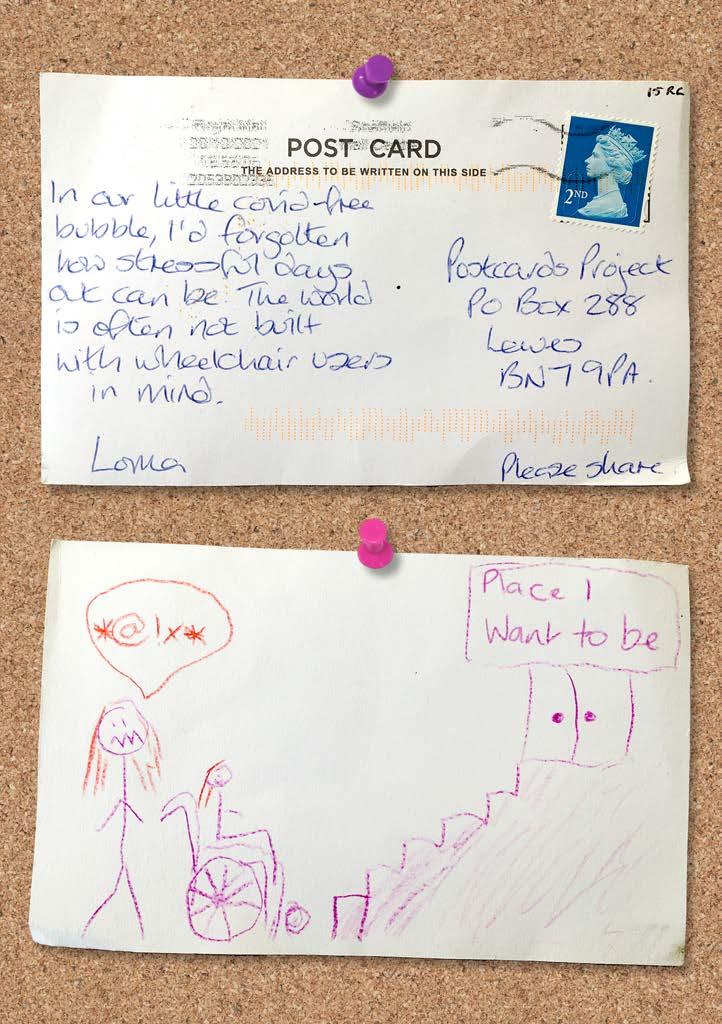 15 RC
POST CARD
THE ADDRESS TO BE WRITTEN ON THIS SIDE
2ND
In our little covid-free
bubble, I'd forgotten
how stressful days
out can be. The world
is often not built
with wheelchair users
in mind.
Lorna
Postcards Project
PO Box 288
Lewes
BN7 9PA.
Please share.
*@!x*
Place I
Want to be